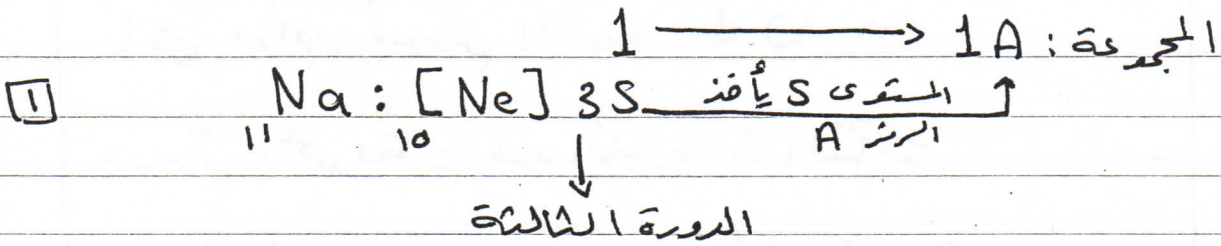 المجموعة : 1A ⟵ 1
1 Na : [Ne] 3S المستوى S يأخذ
11 10 الرمز A
الدورة الثالثة